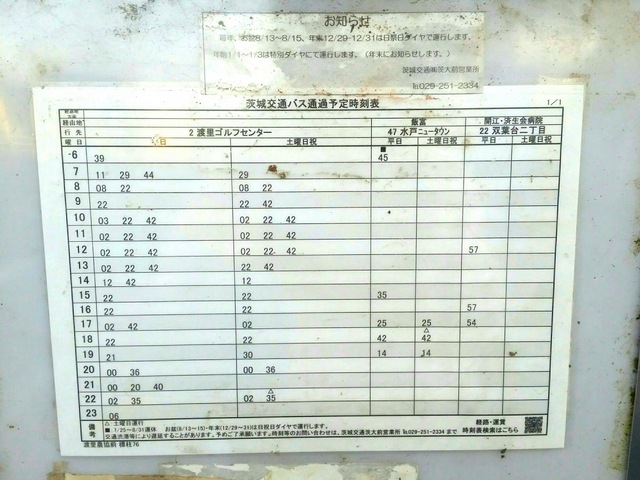 お知らせ
毎年、お盆8/13～8/15、年末12/29-12/31は日祭日ダイヤで運行します。
年始1/1～1/3は特別ダイヤにて運行します。（年末にお知らせします。）
茨城交通㈱茨大前営業所
℡029-251-2334
茨城交通バス通過予定時刻表 1/1
経由地 飯富 開江・済生会病院
行先 2 渡里ゴルフセンター 47 水戸ニュータウン 22 双葉台二丁目
曜日 平日 土曜日祝 平日 土曜日祝 平日 土曜日祝
-6 39 ■45
7 11 29 44 29
8 08 22 08 22
9 22 22 42
10 03 22 42 02 22 42
11 02 22 42 02 22 42
12 02 22 42 02 22 42 57
13 02 22 42 22 42
14 12 42 12
15 22 22 35
16 22 22 57
17 02 42 02 25 25 54
18 22 22 42 △42
19 21 30 14 14
20 00 36 00 36
21 00 20 40
22 02 35 02 △35
23 06
備考
△ 土曜日運行
■ 1/25～8/31運休 お盆(8/13～15)・年末(12/29～31)は日祝日ダイヤで運行します。
交通渋滞等により遅延することがあります。予めご了承願います。時刻等のお問い合わせは、茨城交通茨大前営業所 ℡029-251-2334 まで
経路・運賃
時刻表検索はこちら
渡里農協前 標柱76